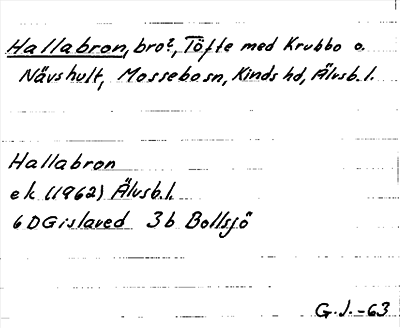 Hallabron, bro?, Töfte med Krubbo o.
Nävshult, Mossebo sn, Kinds hd, Älvsb. l.
Hallabron
ek (1962) Älvsb. l.
6 D Gislaved 3b Bollsjö
G.J. -63